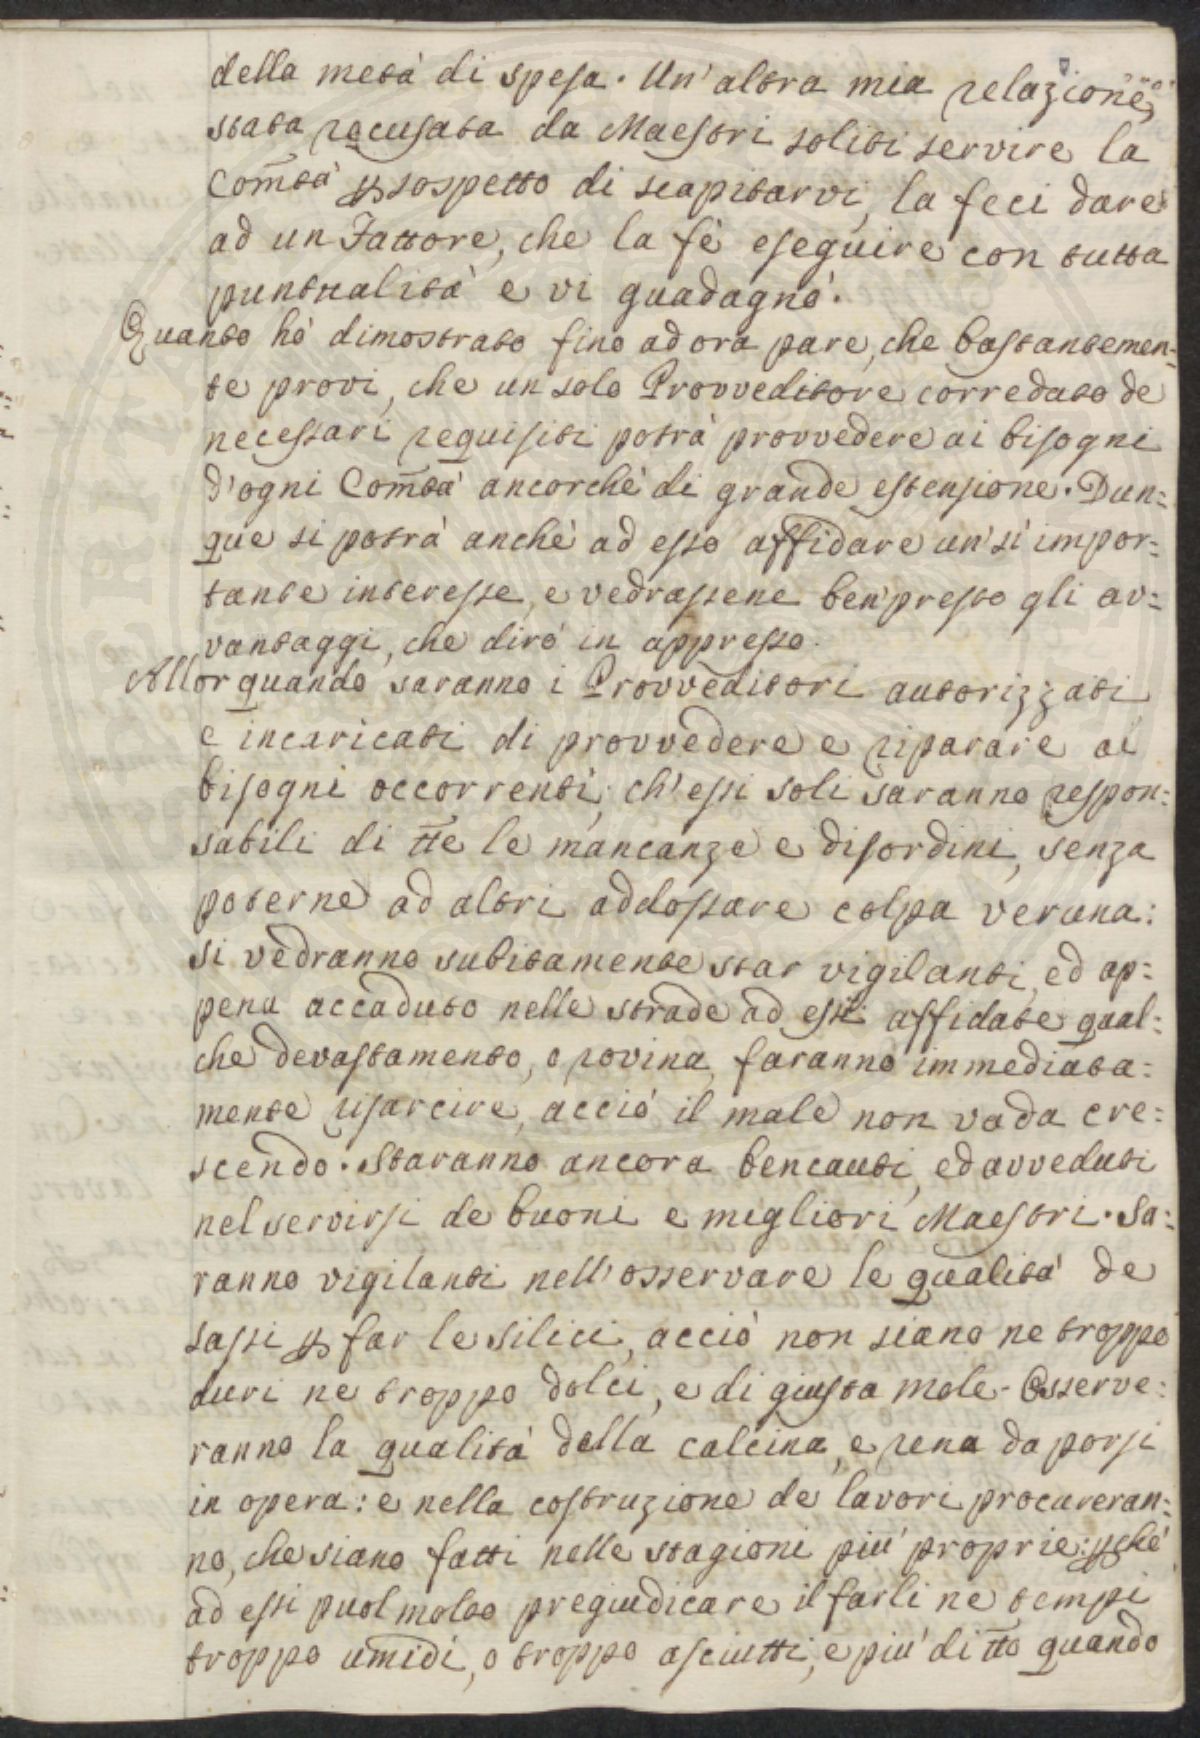 della metà di spesa. Un'altra mia relazione,
stata recusata da Maestri soliti servire la
Com̃tà ꝑ sospetto di scapitarvi, la feci dare
ad un Fattore, che la fè eseguire con tutta
puntualità e vi guadagnò.
Quanto hò dimostrato fino ad ora pare, che bastantemen=
te provi, che un solo Provveditore corredato de
necessari requisiti potrà provvedere ai bisogni
d'ogni Com̃tà ancorchè di grande estensione. Dun=
que si potrà anche ad esso affidare un sì impor=
tante interesse, e vedrassene ben presto gli av=
vantaggi, che dirò in appresso.
Allor quando saranno i Provveditori autorizzati
e incaricati di provvedere e riparare ai
bisogni occorrenti; ch'essi soli saranno respon=
sabili di tt̃e le mancanze e disordini, senza
poterne ad altri addossare colpa veruna:
si vedranno subitamente star vigilanti, ed ap=
pena accaduto nelle strade ad essi affidate qual=
che devastamento, o rovina, faranno immediata=
mente risarcire, acciò il male non vada cre=
scendo. Staranno ancora bencauti, ed avveduti
nel servirsi de buoni e migliori Maestri. Sa=
ranno vigilanti nell'osservare le qualità de
sassi ꝑ far le silici, acciò non siano ne troppo
duri ne troppo dolci, e di giusta mole. Osserve=
ranno la qualità della calcina, e rena da porsi
in opera: e nella costruzione de lavori procureran=
no, che siano fatti nelle stagioni più proprie: ꝑchè
ad essi puol molto pregiudicare il farli ne tempi
troppo umidi, o troppo asciutti, e più di tt̃o quando